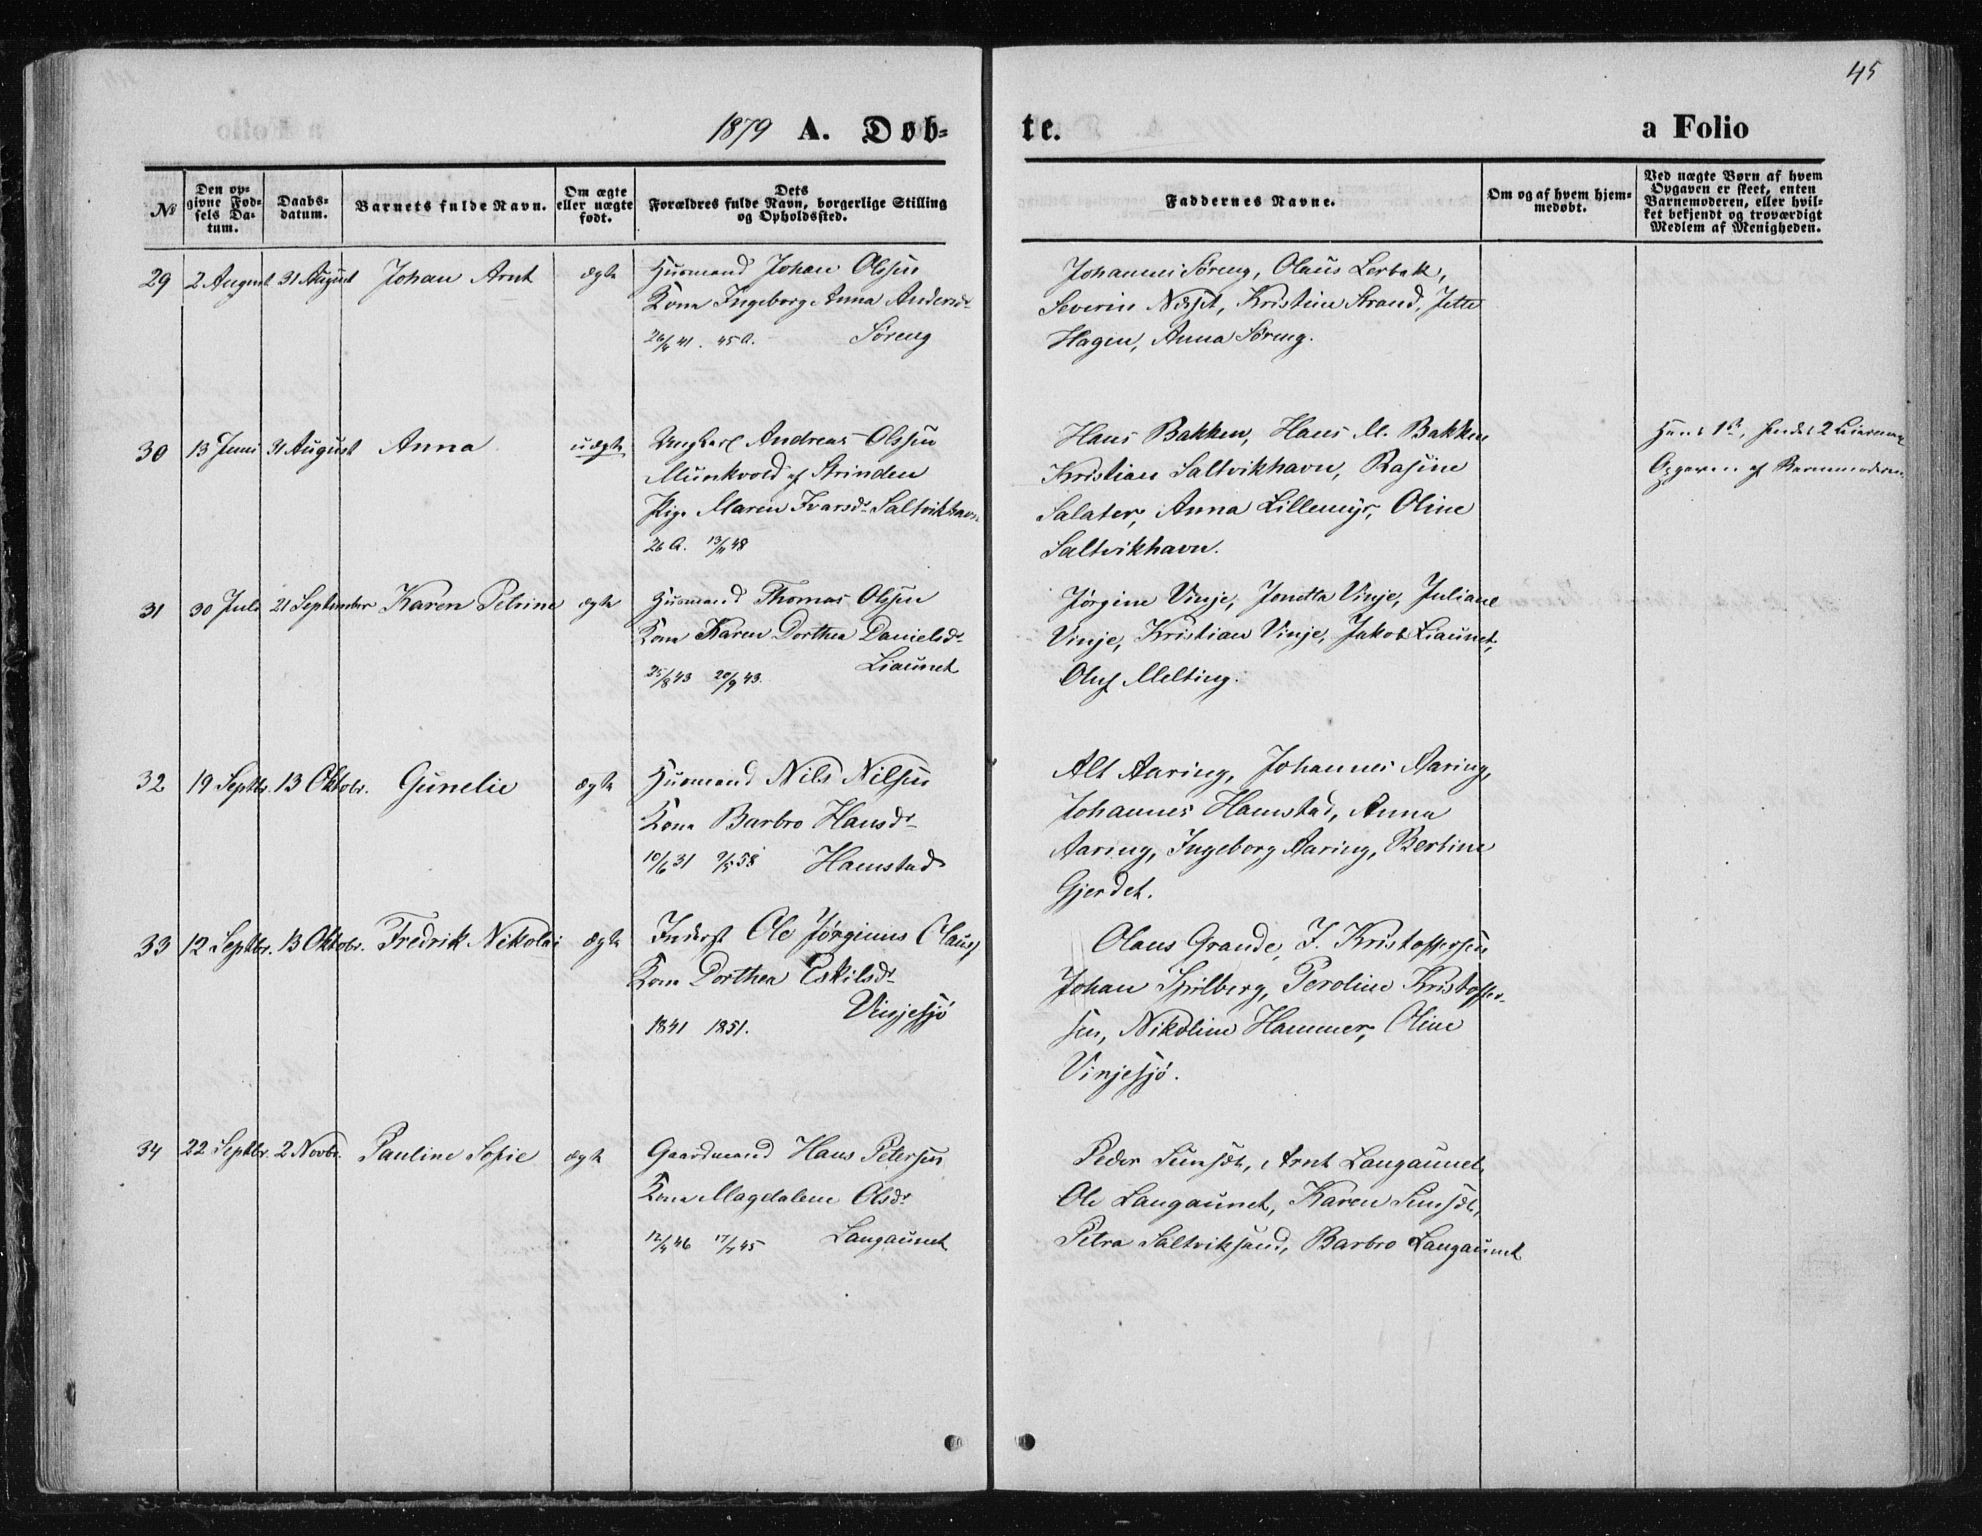 45
1879 A. Døb- te. a Folio
No
Den op-
givne Fød-
sels Da-
tum.
Daabs-
datum.
Barnets fulde Navn.
Om ægte
eller uægte
født.
Dets
Forældres fulde Navn, borgerlige Stilling
og Opholdssted.
Faddernes Navne.
Om og af hvem hjem-
medøbt.
Ved uægte Børn af hvem
Opgaven er skeet, enten
Barnemoderen, eller hvil-
ket bekjendt og troværdigt
Medlem af Menigheden.
29 2 August 31 August Johan Arnt ægte Husmand Johan Olsen
Kone Ingeborg Anna Andersdr
26/4 41. 45 A. Søreng
Johannes Søreng, Olaus Lerbak,
Severin Næset, Kristine Strand, Jette
Hagen, Anna Søreng.
30 13 Juni 31 August Anna uægte Ungkarl Andreas Olssen
Munkvold af Strinden
Pige Maren Ivarsdr Saltvikhavn
26 A. 13/11 48
Hans Bakken, Hans M. Bakken
Kristian Saltvikhavn, Rasine
Salater, Anna Lillemyr, Oline
Saltvikhavn.
Hans 1ste, hendes 2 Leiermaal
Opgaven af Barnemoderen.
31 30 Juli 21 September Karen Petrine ægte Husmand Thomas Olssen
Kone Karen Dorthea Danielsdr
25/8 43 20/9 43. Liaunet
Jørgine Vinje, Jonetta Vinje, Juliane
Vinje, Kristian Vinje, Jakob Liaunet,
Oluf Melting.
32 19 Septbr. 13 Oktobr. Gunelie ægte Husmand Nils Nilsen
Kone Barbro Hansdr
10/6 31 9/5 58 Hamstad
Alt Aaring, Johannes Aaring,
Johannes Hamstad, Anna
Aaring, Ingeborg Aaring, Bertine
Gjerdet.
33 12 Septbr. 13 Oktobr. Fredrik Nikolai ægte Inderst Ole Jørginus Clauss
Kone Dorthea Eskilsdr
1841 1851. Vinjesjø
Olaus Grande, J. Kristoffersen
Johan Spilberg, Peroline Kristoffer-
sen, Nikoline Hammer, Oline
Vinjesjø.
34 22 Septbr. 2 Novbr. Pauline Sofie ægte Gaardmand Hans Petersen
Kone Magdalene Olsdr
12/4 46 17/7 45 Langaunet
Peder Sunsdt, Arnt Langaunet,
Ole Langaunet, Karen Sunsdt,
Petra Saltviksand, Barbro Langaunet